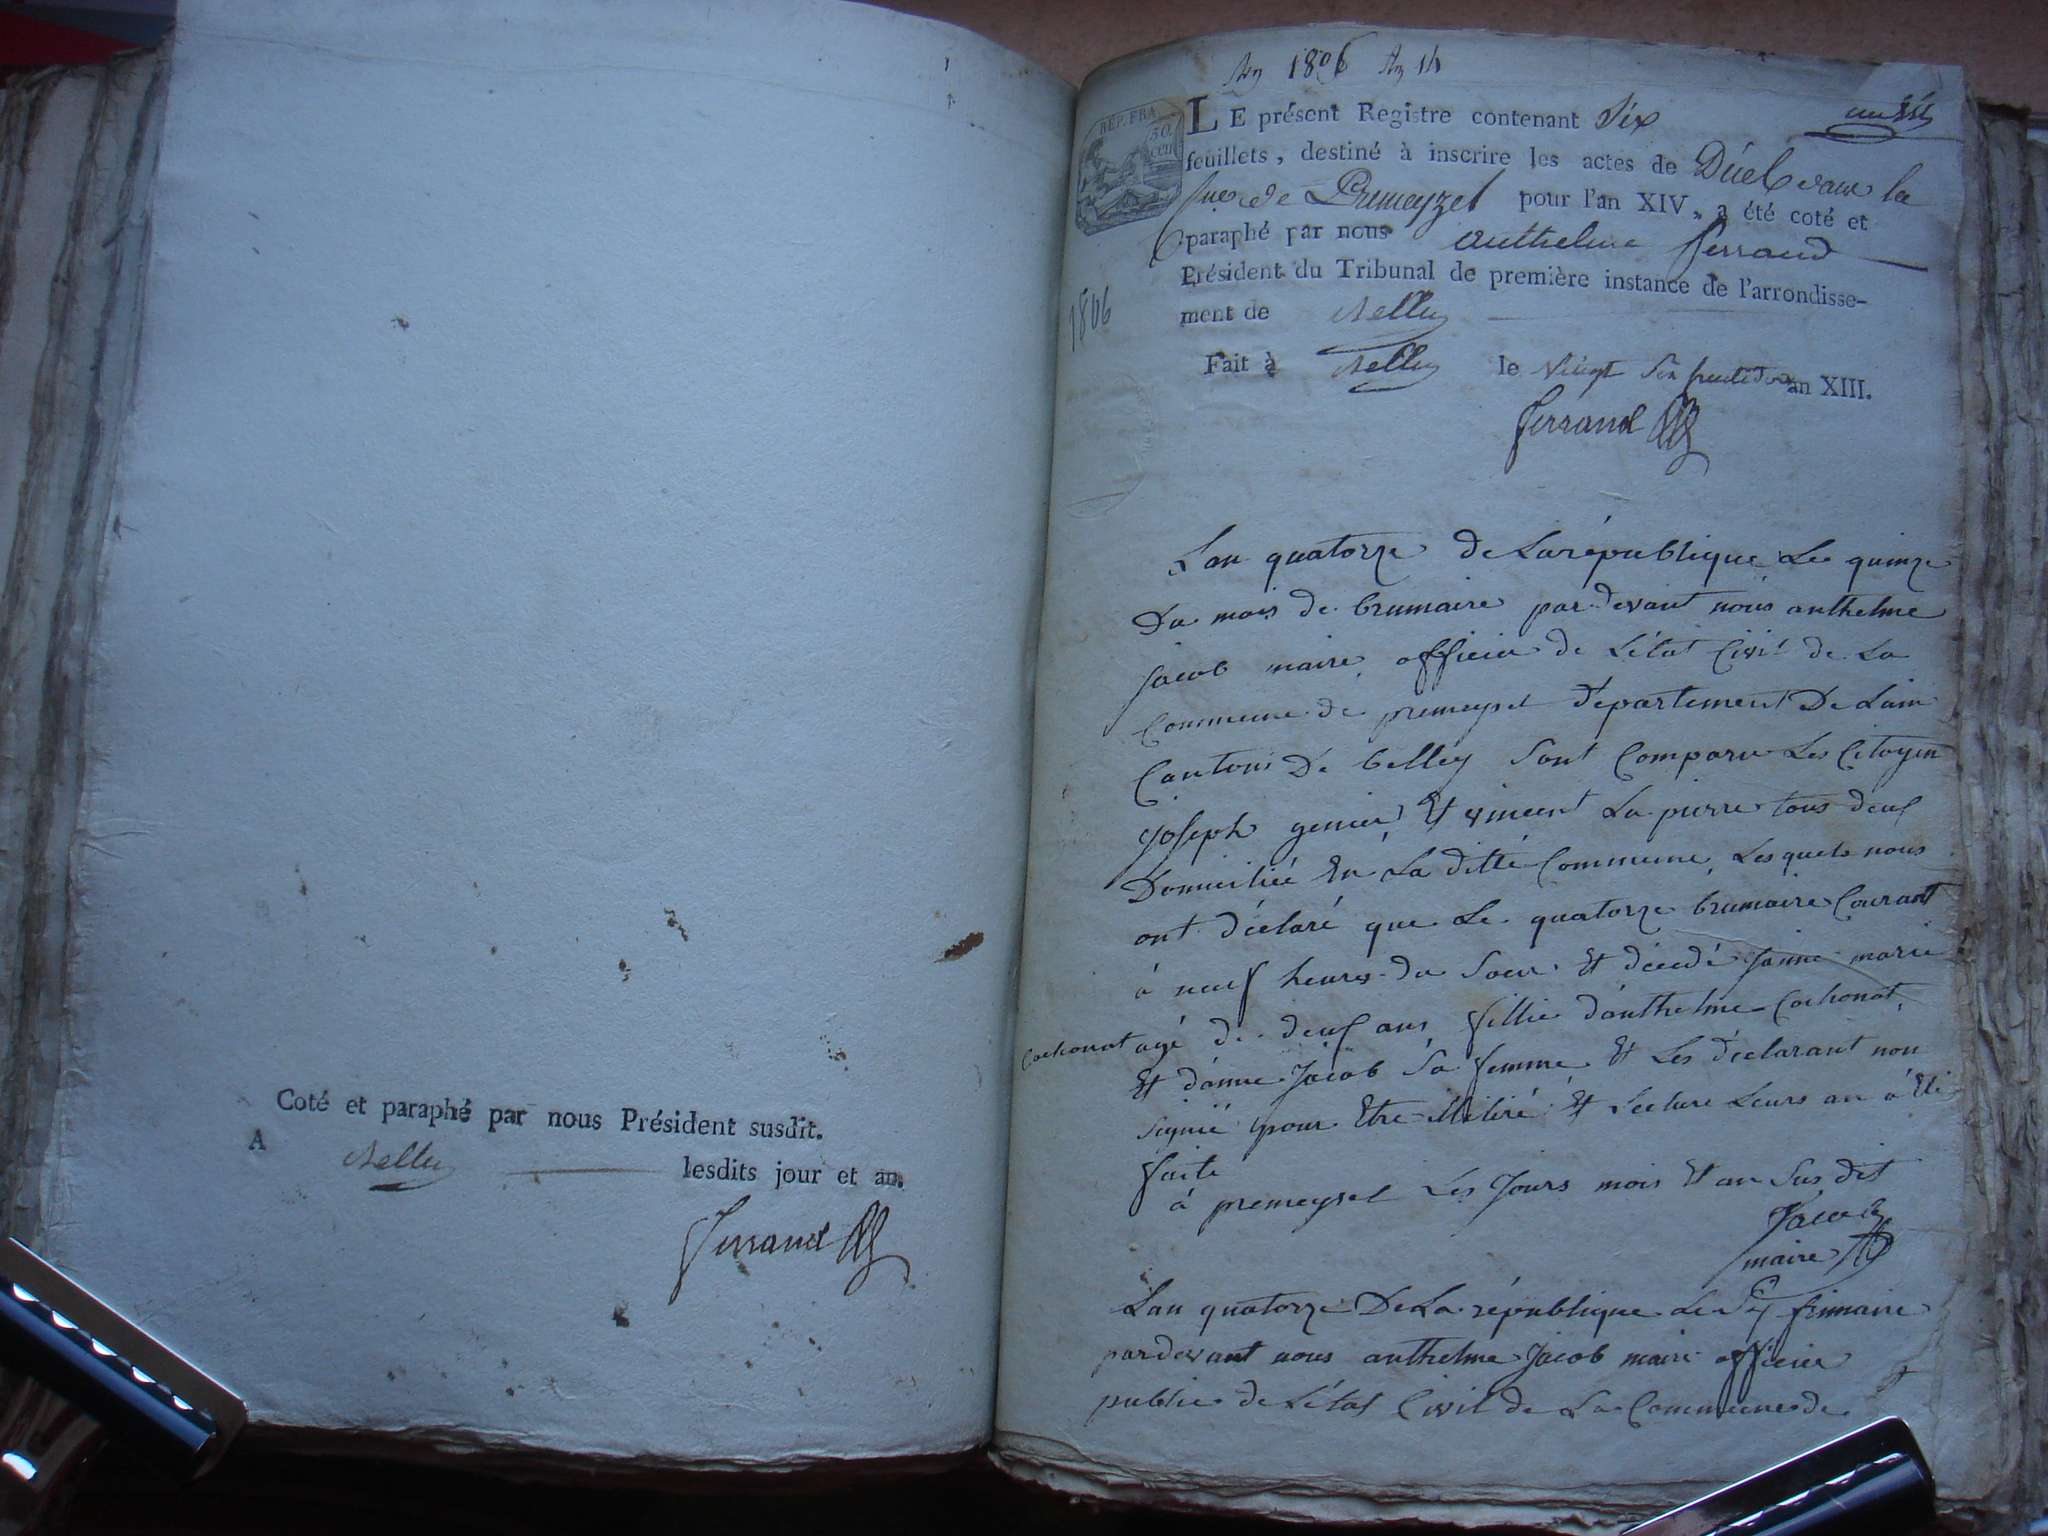 Coté et paraphé par nous Président susdit.
A Belley lesdits jour et an.
Ferrand
an 1806 an 14
REP. FRA
50 cen
LE présent Registre contenant Six
feuillets, destiné à inscrire les actes de Décès dans la
de Premeyzel pour l'an XIV, a été coté et
paraphé par nous anthelme ferrand
Président du Tribunal de première instance de l'arrondisse-
ment de Belley
1806
Fait à Belley le Vingt Six fructidor an XIII.
ferrand
Lan quatorze de La république Le quinze
Du mois de brumaire par devant nous anthelme
Jacob maire officier de Létat Civil de La
Commune de premeysel département De Lain
Canton De belley Sont Comparu Les Citoyen
Joseph genier Et vincent La pierre tous deuf
Domiciliée En La ditte Commune Lesquels nous
ont déclaré que Le quatorze brumaire Courant
á neuf heures du Soir Et décédé Janne marie
Cochonat agé de deuf ans fillie dánthelme Cochonat
Et dánne Jacob Sa femme Et Les déclarant non
Signié pour Etre Et Lecture Leurs an á Eté
faite
á premeysel Les Jours mois Et an Sus dit
Jacob
maire
Lan quatorze De La république Le Six frimaire
pardevant nous anthelme Jacob maire officier
public de Létat Civil de La Commune de